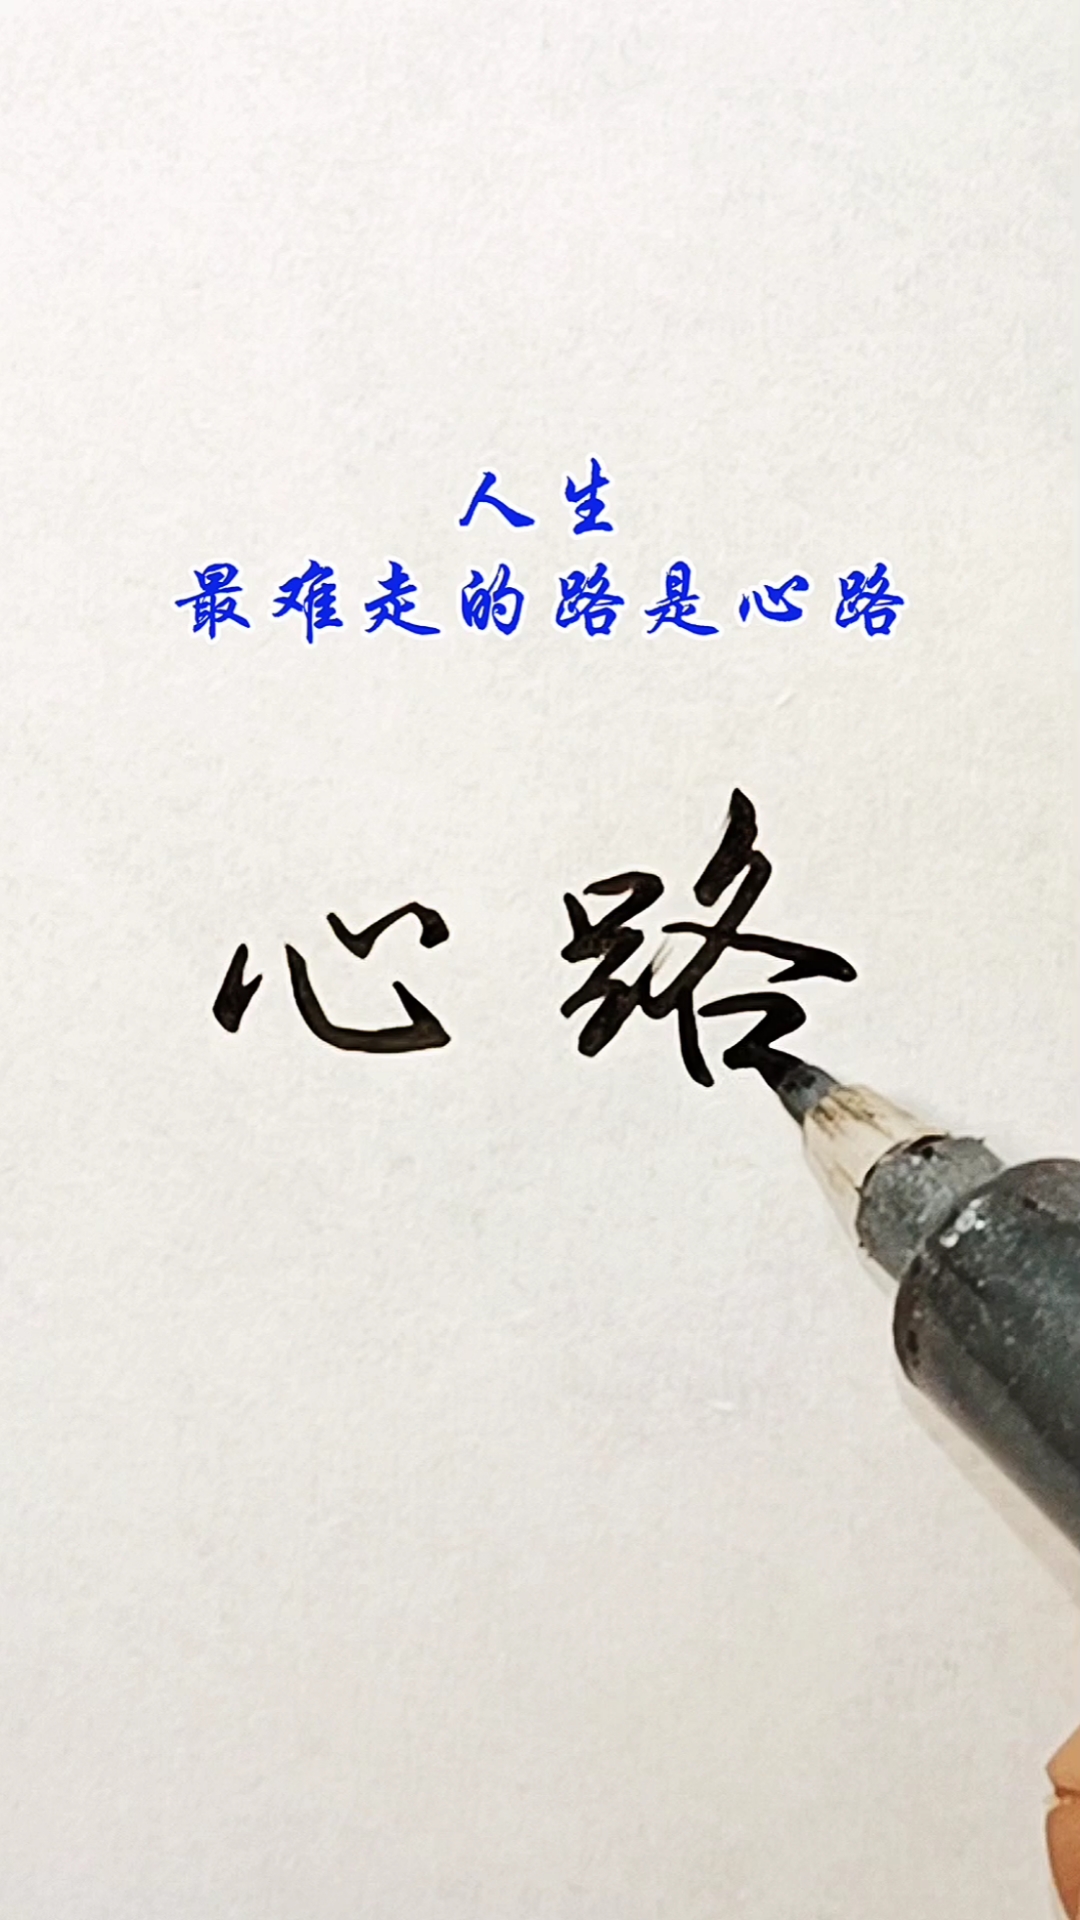 人生
最难走的路是心路
心路